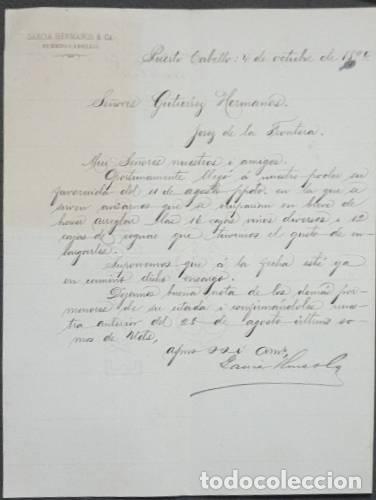 GARCIA HERMANOS & Ca.
PUERTO CABELLO
Puerto Cabello: 4 de octubre de 189
Señores Gutierrez Hermanos.
Jerez de la Frontera.
Muy Señores nuestros i amigos.
Oportunamente llegó á nuestro poder su
favorecida del 11 de agosto ppdo. en la que se
sirven avisarnos que se ocuparian en breve de
hacer arreglar las 16 cajas vinos diversos i 12
cajas de cognac que tuvimos el gusto de en-
cargarles.
Suponemos que á la fecha esté ya
en camino dicho encargo.
Dejamos buena nota de los demás por-
menores de su citada i confirmándoles nues-
tra anterior del 23 de agosto último so-
mos de Udes,
afmos SS i Ams,
Garcia Hnos & Ca
todocoleccion.net